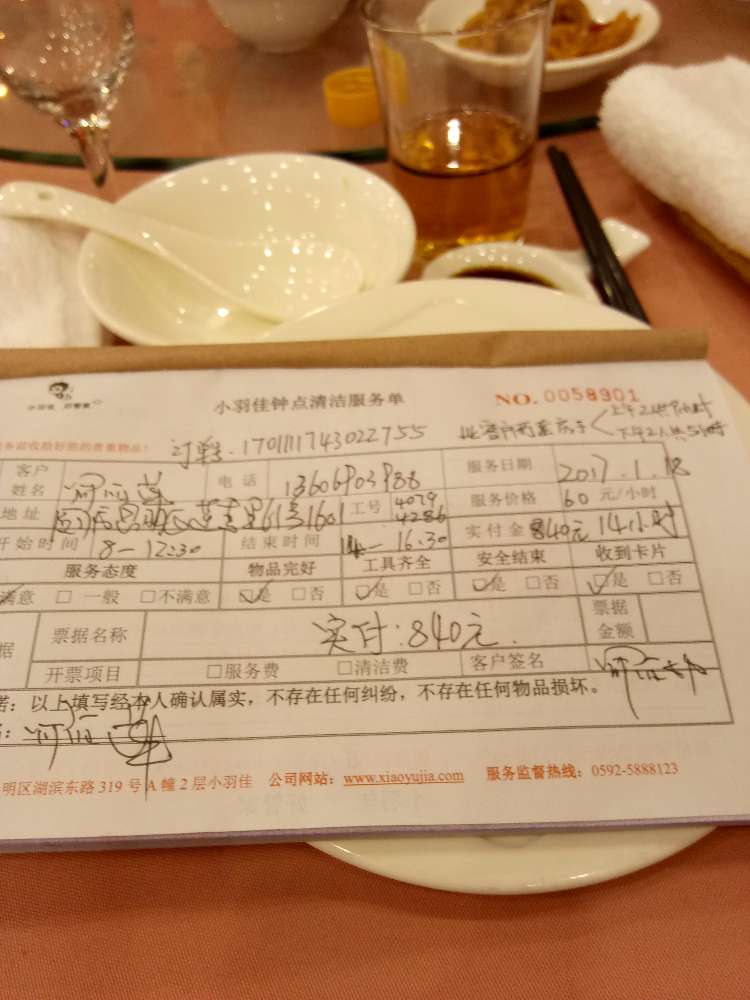 小羽佳 好管家
小羽佳钟点清洁服务单 NO. 0058901
务必收捡好您的贵重物品!
订单号: 170111743022755
上午2人共9小时
下午2人共5小时
客户姓名 电话 13606903988 服务日期 2017.1.18
地址 工号 4079 4286 服务价格 60 元/小时
开始时间 8-12:30 结束时间 14-16:30 实付金 840元 14小时
服务态度 物品完好 工具齐全 安全结束 收到卡片
满意 □ 一般 □不满意 ☑是 □否 ☑是 □否 ☑是 □否 ☑是 □否
据 票据名称 实付:840元. 票据金额
开票项目 □服务费 □清洁费 客户签名
诺:以上填写经本人确认属实,不存在任何纠纷,不存在任何物品损坏。
明区湖滨东路 319 号 A 幢 2 层小羽佳 公司网站:www.xiaoyujia.com 服务监督热线:0592-5888123